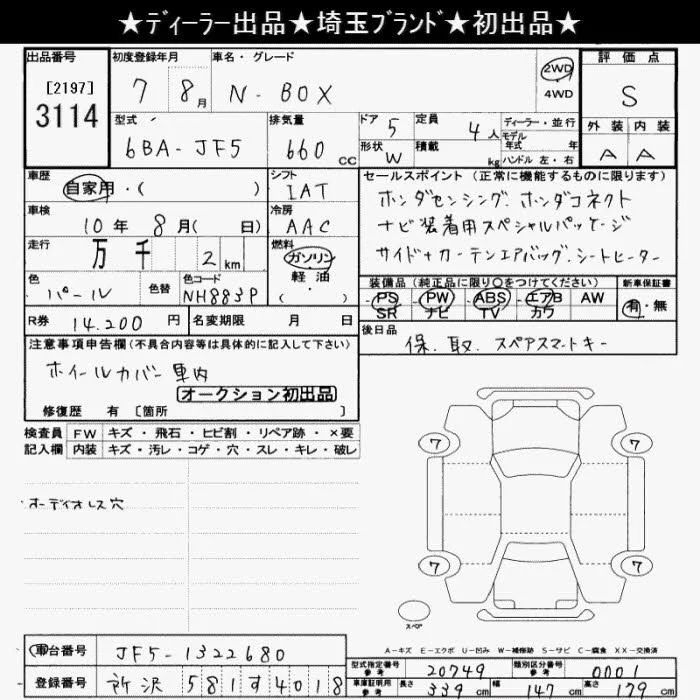 ★ディーラー出品★埼玉ブランド★初出品★
出品番号 [2197] 3114
初度登録年月 7年 8月
車名・グレード N-BOX
2WD
4WD
評価点 S
外装 内装
A A
型式 6BA-JF5
排気量 660 CC
ドア 5
形状 W
定員 4人
積載 kg
ディーラー・並行
モデル年式 年
ハンドル 左・右
車歴 自家用・( )
シフト IAT
車検 10年 8月( 日)
冷房 AAC
走行 万 千 2 km
燃料 ガソリン・軽・油・( )
色 パール
色替
色コード NH883P
R券 14,200円
名変期限 月 日
セールスポイント (正常に機能するものに限ります)
ホンダセンシング. ホンダコネクト
ナビ装着用スペシャルパッケージ
サイド+カーテンエアバッグ. シートヒーター
装備品(純正品に限り○をつけてください)
新車保証書
PS PW ABS エアB AW
SR ナビ TV カワ
有・無
後日品
保. 取. スペアスマートキー
注意事項申告欄 (不具合内容等は具体的に記入して下さい)
ホイールカバー車内
オークション初出品
修復歴 有 [箇所 ]
検査員 FW キズ・飛石・ヒビ割・リペア跡・×要
記入欄 内装 キズ・汚レ・コゲ・穴・スレ・キレ・破レ
オーディオレス穴
7 7
7 7
スペア
A-キズ E-エクボ U-凹み W-補修跡 S-サビ C-腐食 XX-交換済
車台番号 JF5-1322680
登録番号 所沢 581す4018
型式指定番号 参考 20749
類別区分番号 参考 0001
車庫証明用 参考 長さ 339cm 幅 147cm 高さ 179cm